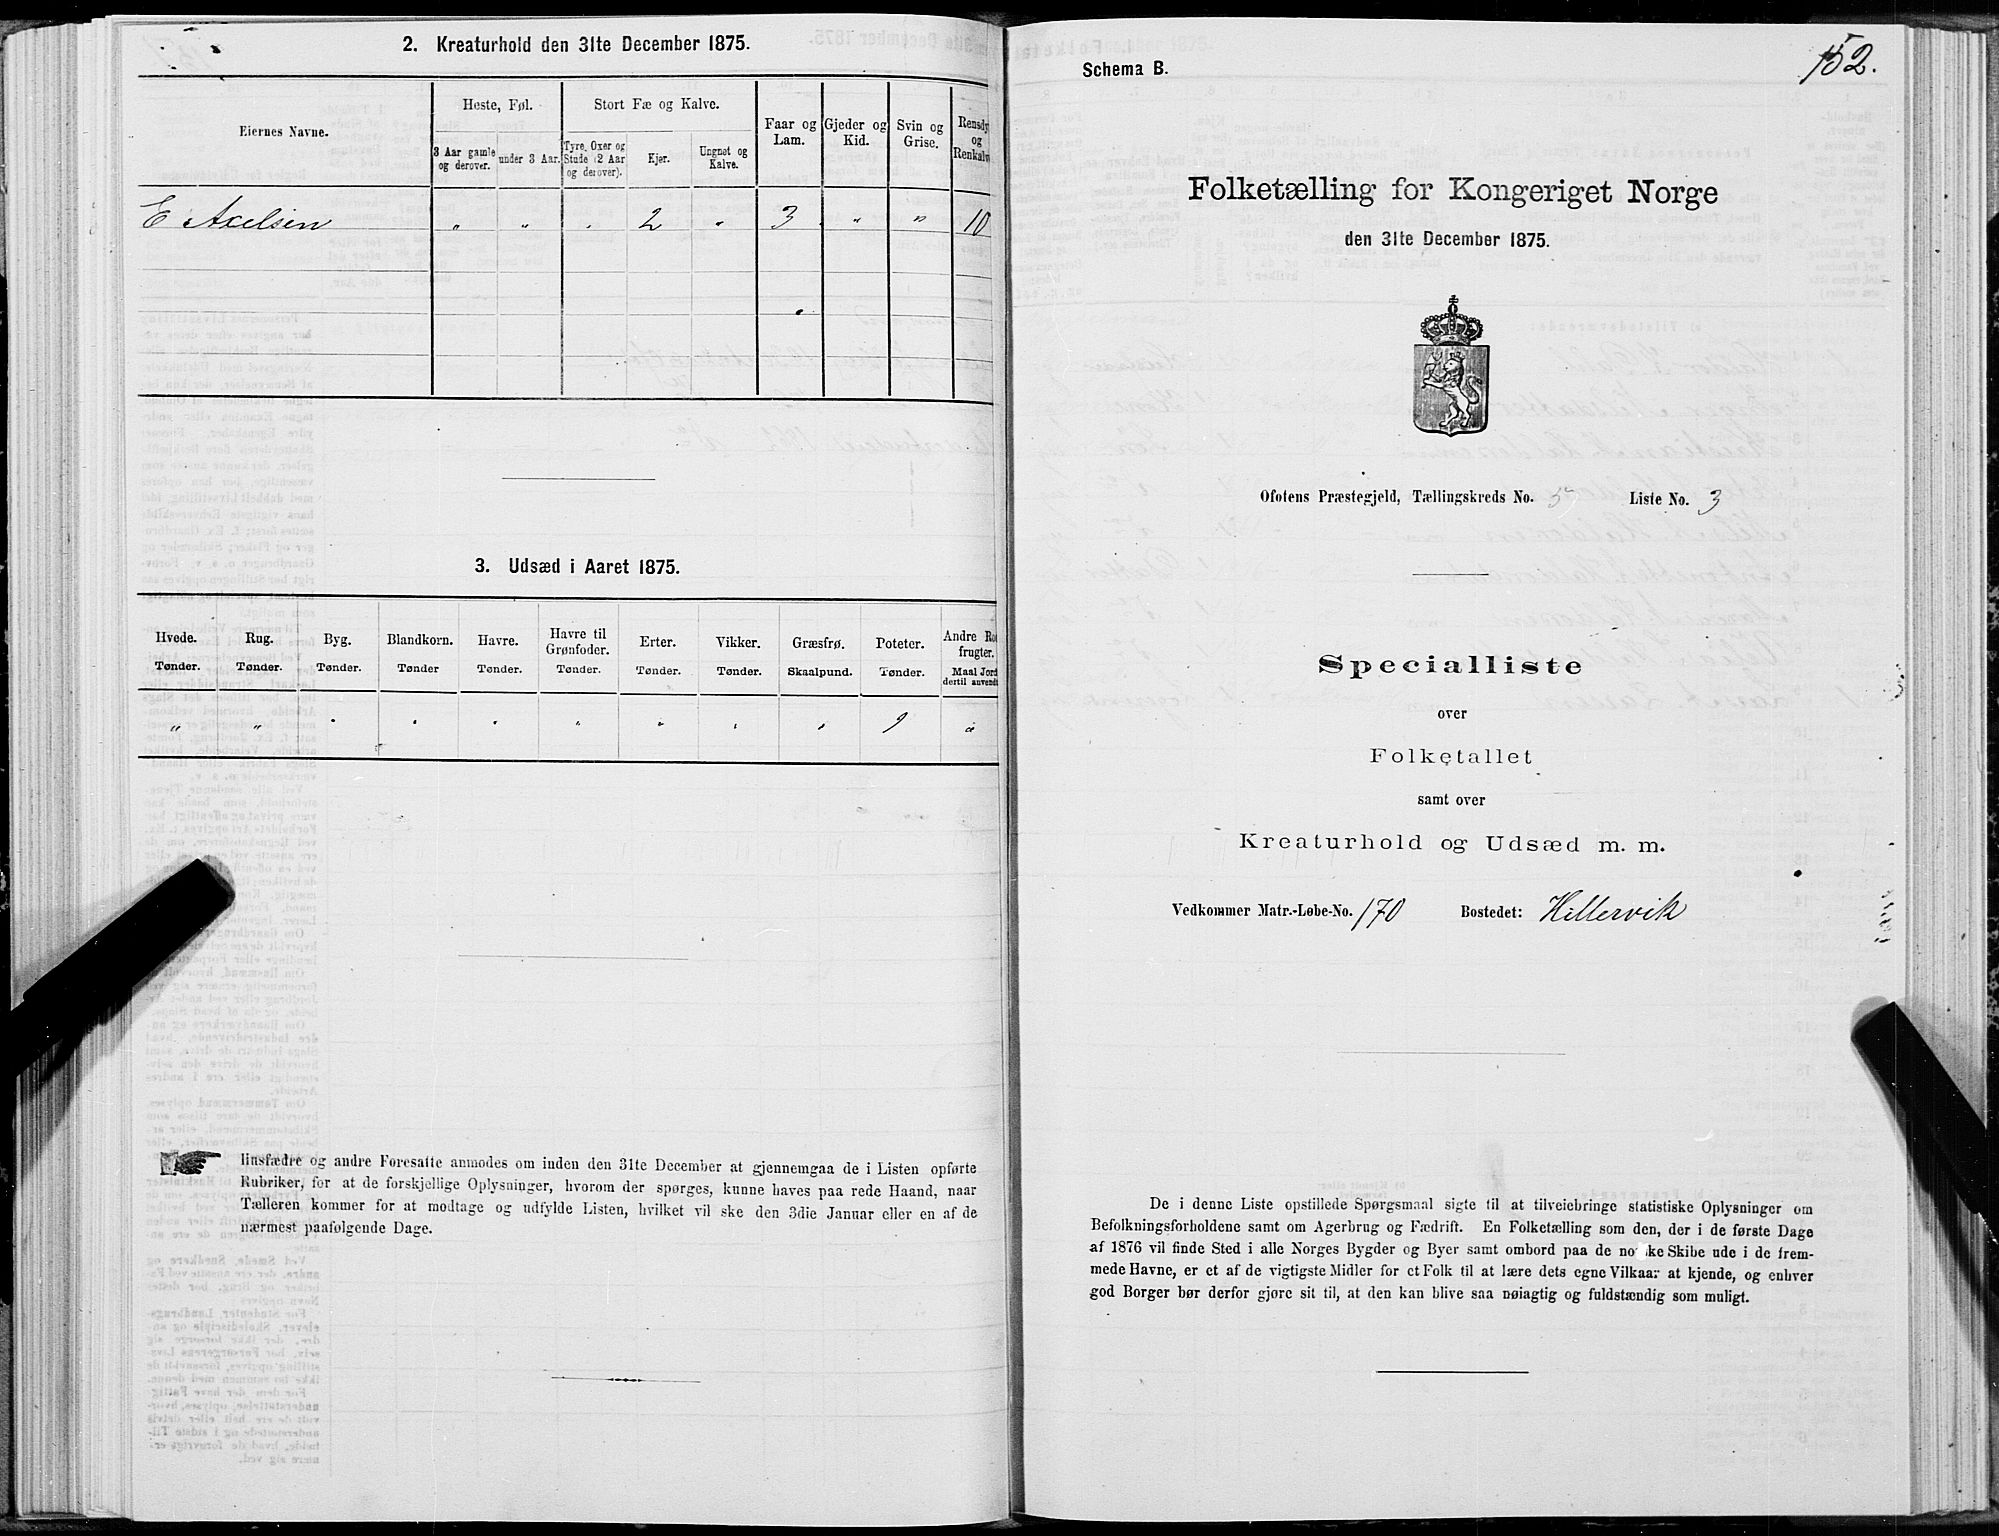 2. Kreaturhold den 31te December 1875.
Eiernes Navne.
Heste, Føl.
Stort Fæ og Kalve.
Faar og Lam.
Gjeder og Kid.
Svin og Grise.
Rensdy
og
Renkalv
3 Aar gamle og derover.
under 3 Aar.
Tyre, Oxer og Stude (2 Aar og derover).
Kjør.
Ungnøt og Kalve.
E Axelsen " " " 2 " 3 " " 10
3. Udsæd i Aaret 1875.
Hvede. Rug. Byg. Blandkorn. Havre. Havre til Grønfoder. Erter. Vikker. Græsfrø. Poteter. Andre Ro frugter.
Tønder. Tønder. Tønder. Tønder Tønder. Tønder. Tønder. Tønder. Skaalpund. Tønder. Maal Jord dertil anvendt
" " " " " " " " " 9 "
Husfædre og andre Foresatte anmodes om inden den 31te December at gjennemgaa de i Listen opførte
Rubriker, for at de forskjellige Oplysninger, hvorom der spørges, kunne haves paa rede Haand, naar
Tælleren kommer for at modtage og udfylde Listen, hvilket vil ske den 3die Januar eller en af de
nærmest paafølgende Dage.
152.
Schema B.
Folketælling for Kongeriget Norge
den 31te December 1875.
Ofotens Præstegjeld, Tællingskreds No. 5 Liste No. 3
Specialliste
over
Folketallet
samt over
Kreaturhold og Udsæd m. m.
Vedkommer Matr.-Løbe-No. 170 Bostedet: Hillervik
De i denne Liste opstillede Spørgsmaal sigte til at tilveiebringe statistiske Oplysninger om
Befolkningsforholdene samt om Agerbrug og Fædrift. En Folketælling som den, der i de første Dage
af 1876 vil finde Sted i alle Norges Bygder og Byer samt ombord paa de no ke Skibe ude i de frem-
mede Havne, er et af de vigtigste Midler for et Folk til at lære dets egne Vilkaar at kjende, og enhver
god Borger bør derfor gjøre sit til, at den kan blive saa nøiagtig og fuldstændig som muligt.